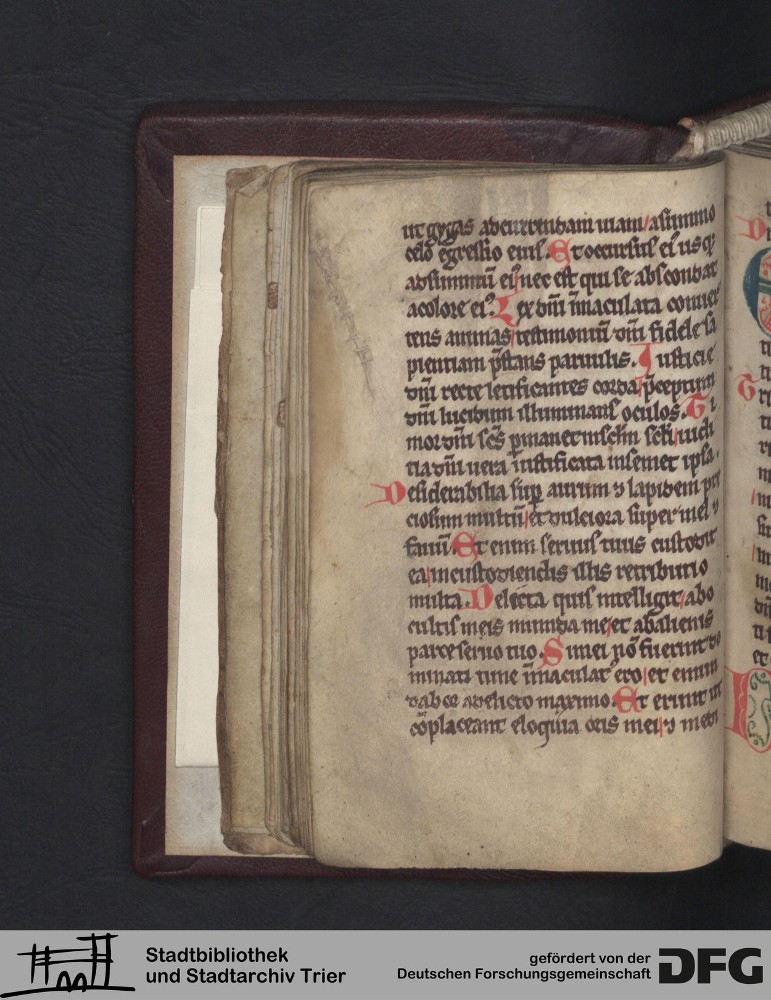 ut gygas adcurrendam uiam / asummo
celo egressio eius. Et occursus ei usq;
adsummū ei᾽ nec est qui se abscondat
acolore ei᾽. Lex dn̄i īmaculata conuer
tens animas / testimoniū dn̄i fidele sa
pientiam p̄stans paruulis. Iusticie
dn̄i recte letificantes corda / p̄ceptum
dn̄i lucidum illuminans oculos. Ti
mor dn̄i scs̄ p̄manet insclm̄ scli̅ / iudi
tia dn̄i uera iustificata insemet ipsa.
Desiderabilia sup̄ aurum ⁊ lapidem pre
ciosum multū / et dulciora super mel ⁊
fauū. Et enim seruus tuus custodit
ea / incustodiendis illis retributio
multa. Delicta quis intelligit / abo
cultis meis munda me / et abalienis
parce seruo tuo. Si mei nō fuerint do
minati tunc īmaculat᾽ ero / et emun
dabor adelicto maximo. Et erunt ut
cōplaceant eloquia oris mei / ⁊ medi
Stadtbibliothek
und Stadtarchiv Trier
gefördert von der
Deutschen Forschungsgemeinschaft
DFG